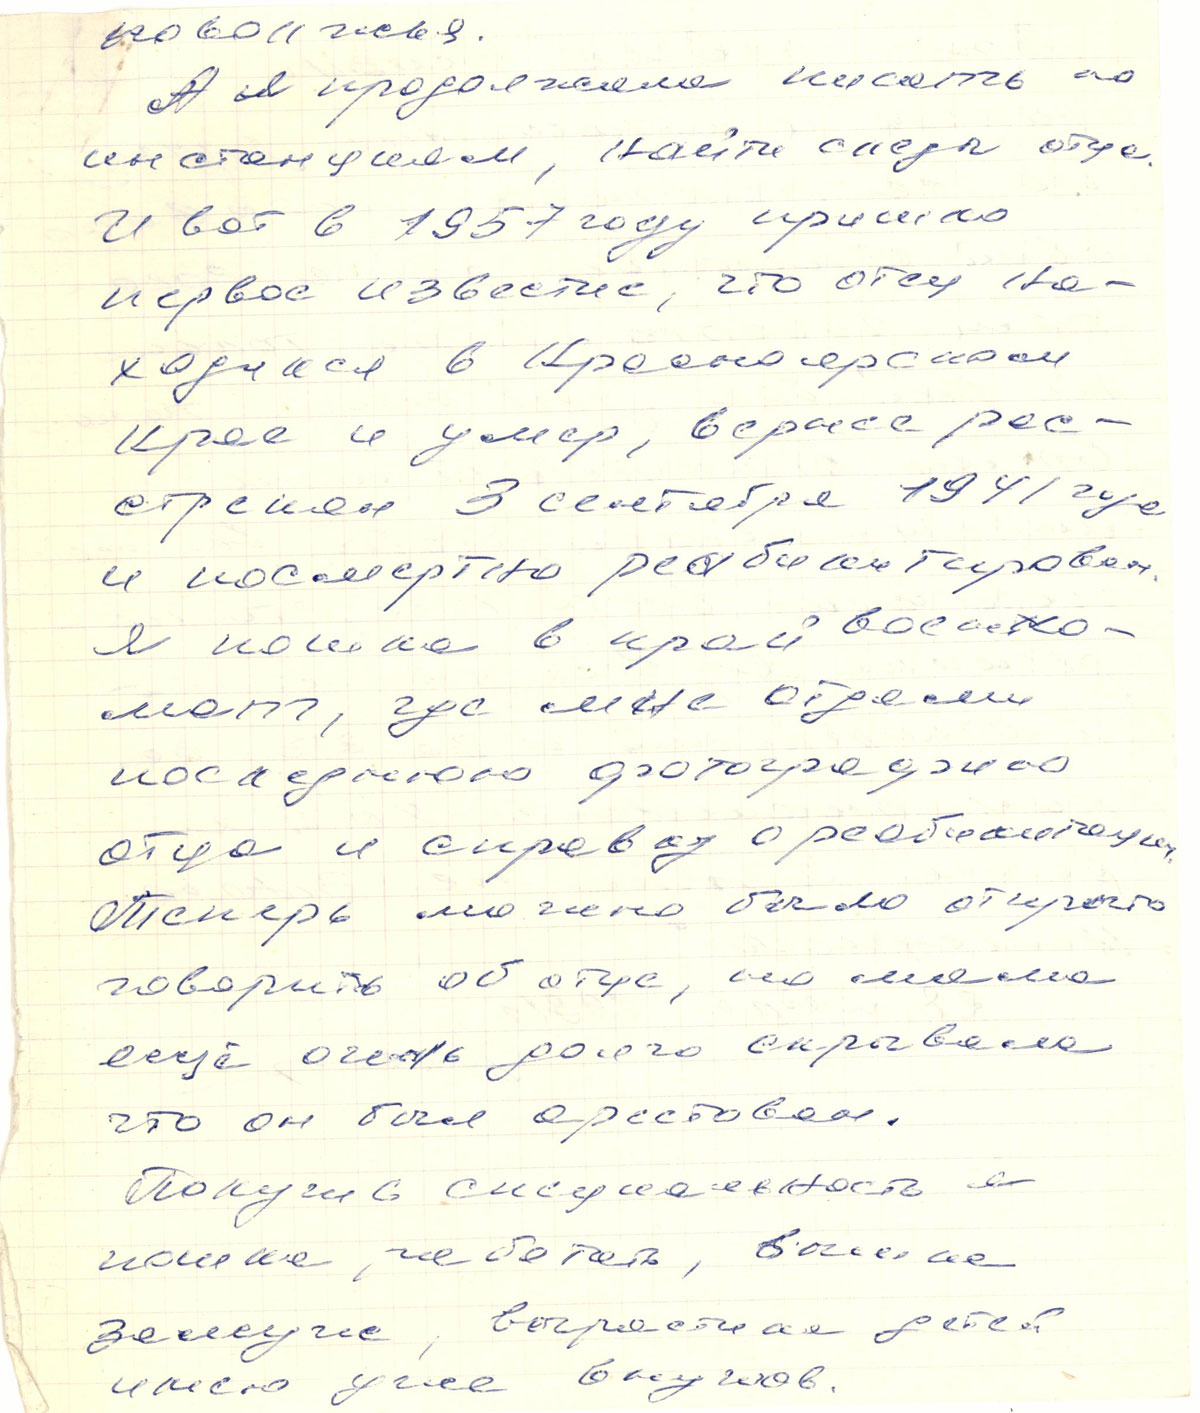 новой жизнь.
А я продолжала писать по
инстанциям, найти следы отца.
И вот в 1957 году пришло
первое известие, что отец на-
ходился в Красноярском
крае и умер, вернее рас-
стрелян 3 сентября 1941 года
и посмертно реабилитирован.
Я пошла в край военко-
мат, где мне отдали
последнюю фотографию
отца и справку о реабилитации.
Теперь можно было открыто
говорить об отце, но мама
ещё очень долго скрывала
что он был арестован.
Получив специальность я
пошла работать, вышла
замуж, вырастила детей
имею уже внуков.